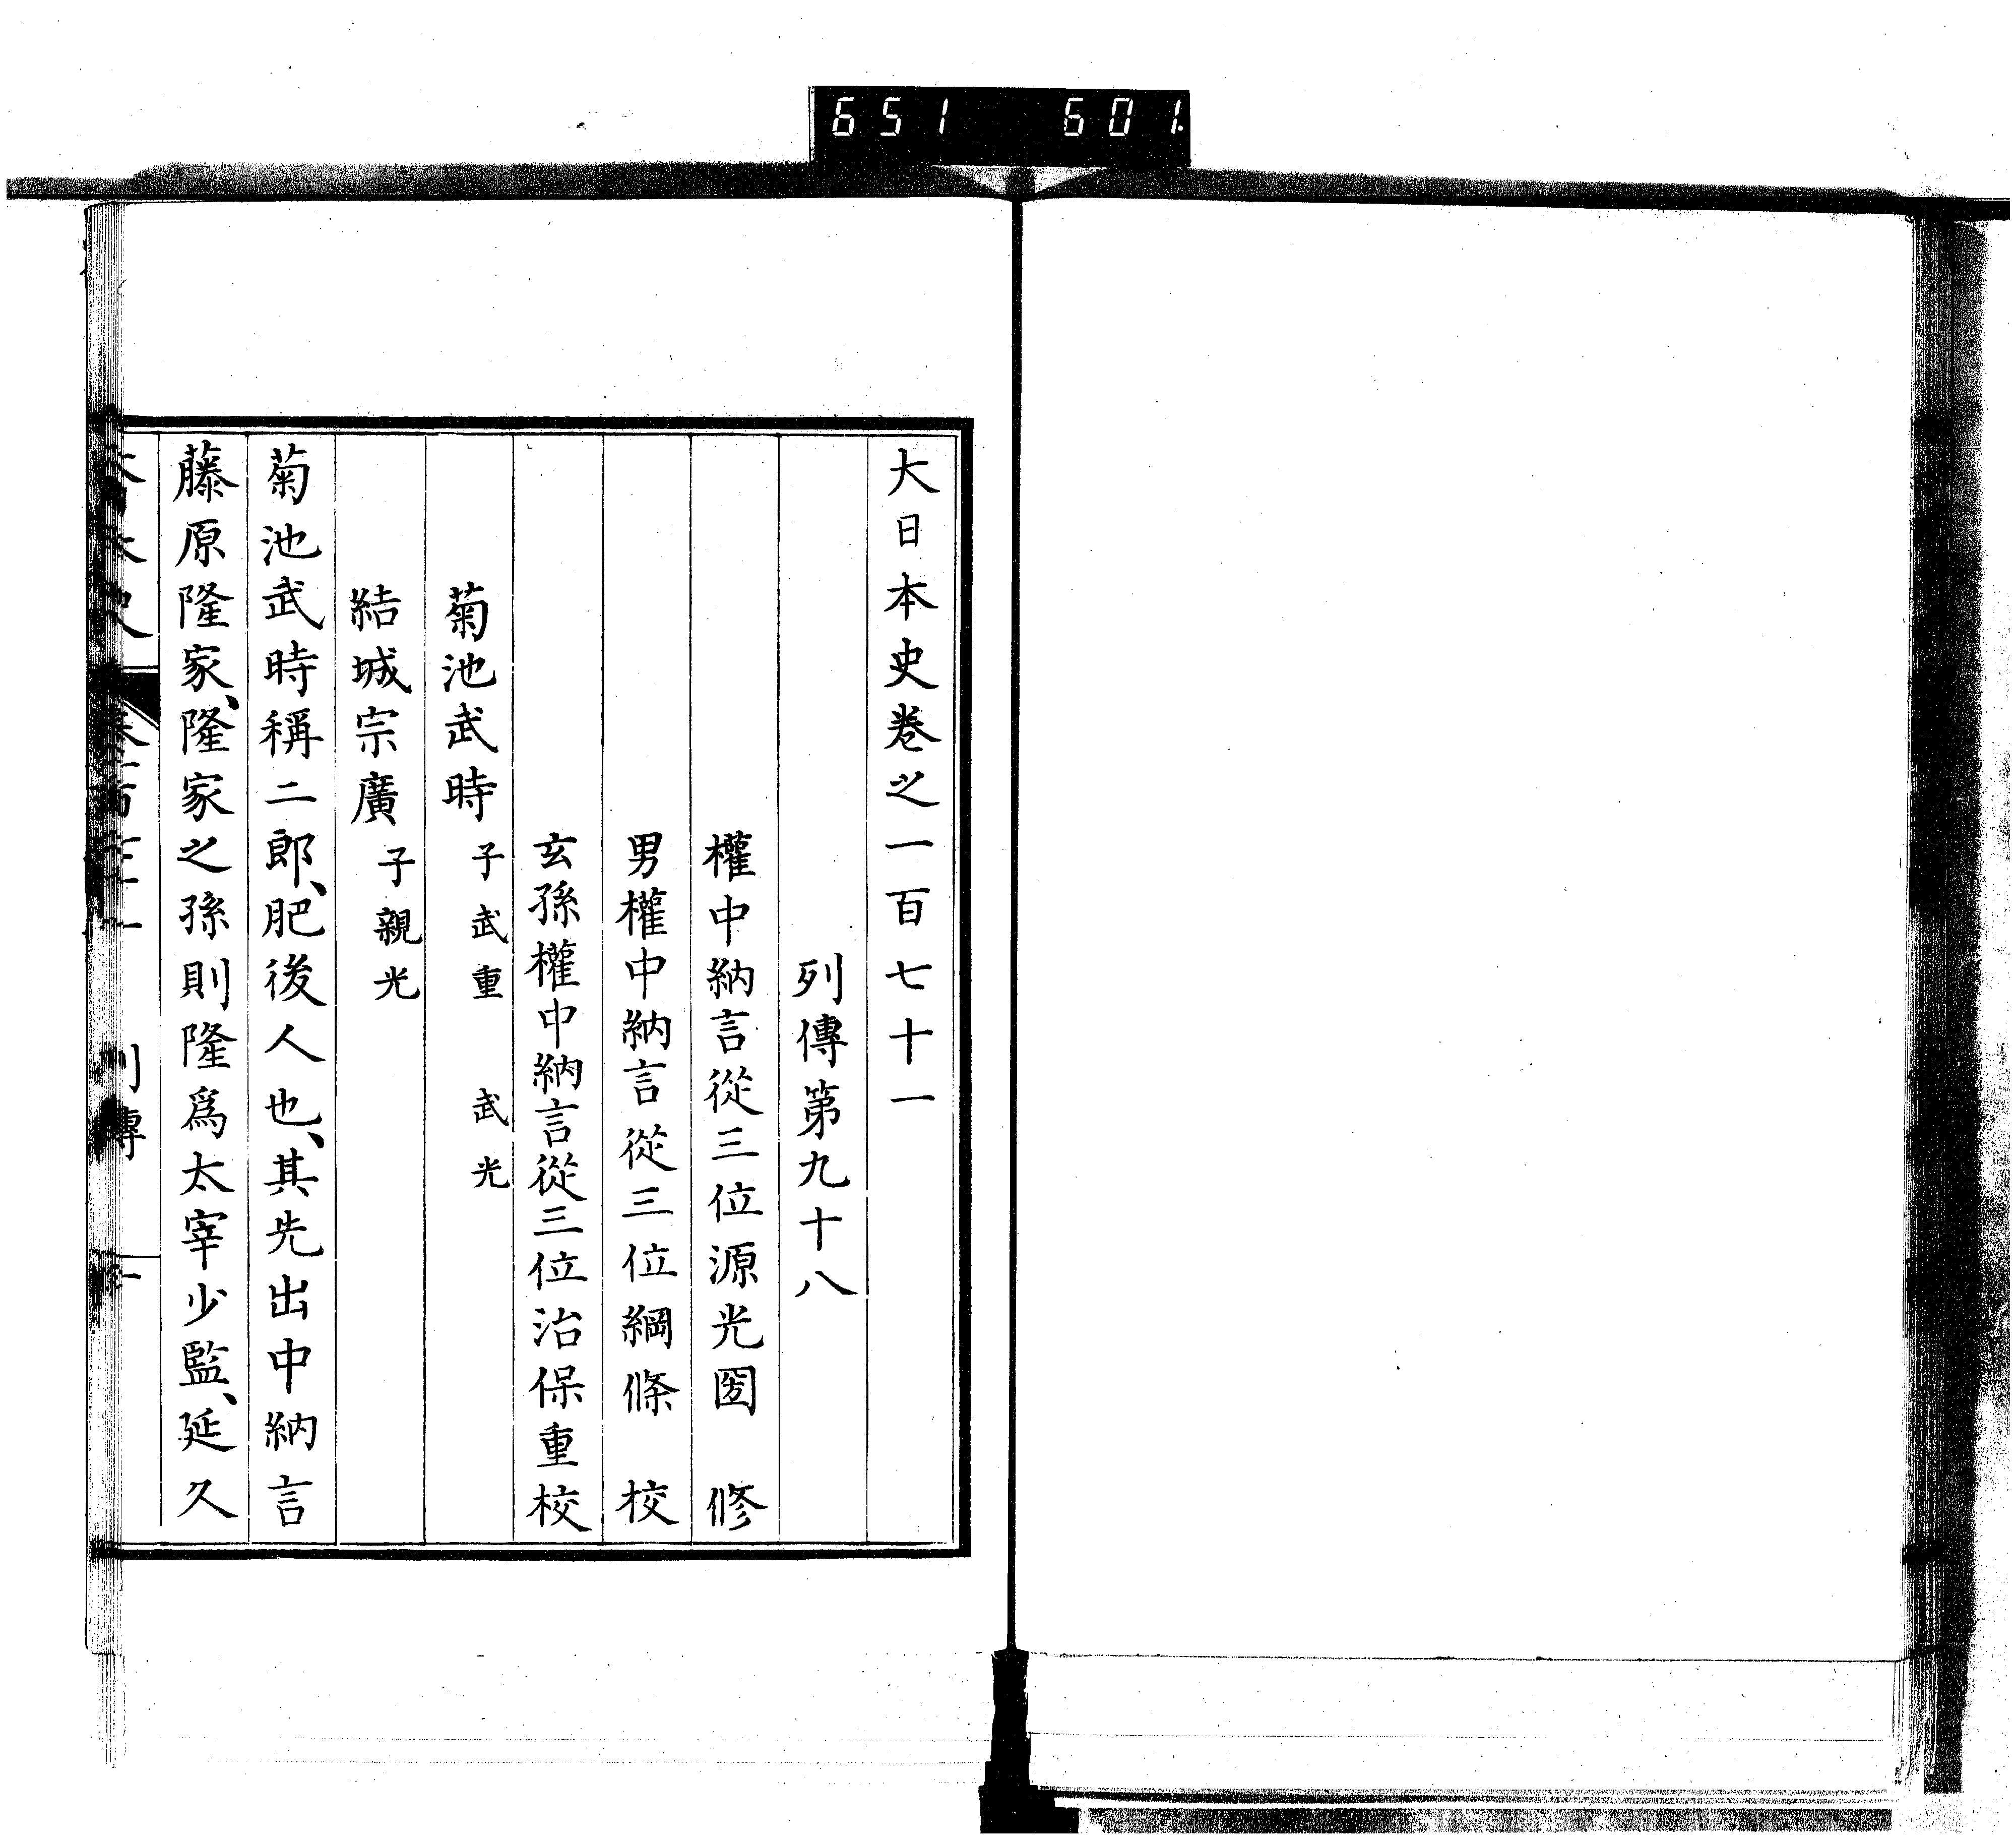 651 601
大日本史卷之一百七十一
列傳第九十八
權中納言從三位源光圀 修
男權中納言從三位綱條 校
玄孫權中納言從三位治保重校
菊池武時 子武重 武光
結城宗廣 子親光
菊池武時稱二郎、肥後人也、其先出中納言
藤原隆家、隆家之孫則隆爲太宰少監、延久
列傳